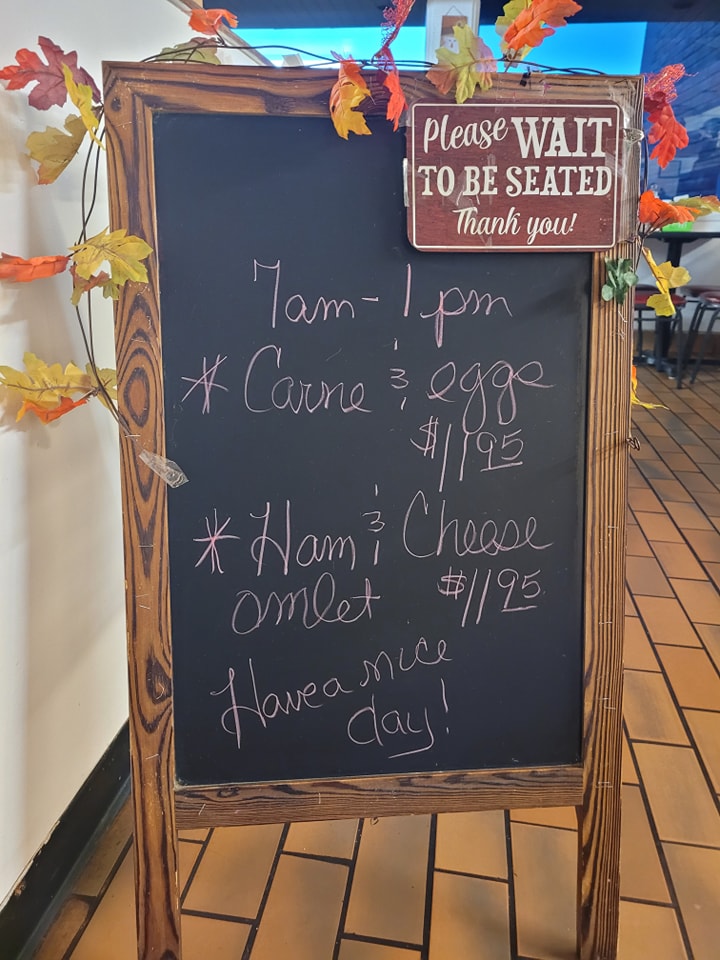 Please WAIT
TO BE SEATED
Thank you!
7am - 1 pm
* Carne & eggs
$11 95
* Ham & Cheese
omlet $11 95
Have a nice
day!